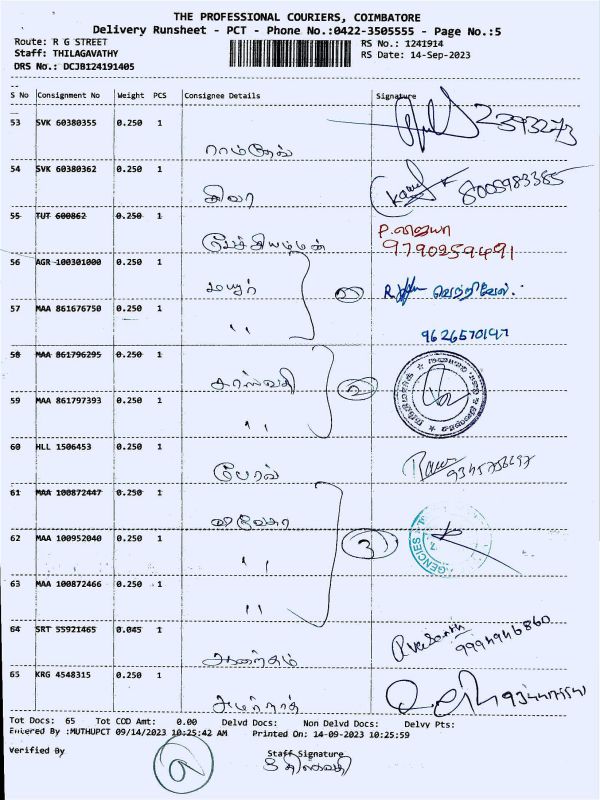 THE PROFESSIONAL COURIERS, COIMBATORE
Delivery Runsheet - PCT - Phone No.:0422-3505555 - Page No.:5
Route: R G STREET RS No.: 1241914
Staff: THILAGAVATHY RS Date: 14-Sep-2023
DRS No.: DCJB124191405
S No Consignment No Weight PCS Consignee Details Signature
53 SVK 60380355 0.250 1
ராம்தேவ்
54 SVK 60380362 0.250 1
சிவா 8005983385
55 TUT 600862 0.250 1 P.
பேச்சியம்மன் 9790259491
56 AGR 100301000 0.250 1
மயூர் R. வெற்றிவேல்.
57 MAA 861676750 0.250 1
" 9626570197
58 MAA 861796295 0.250 1
சரஸ்வதி 2
59 MAA 861797393 0.250 1
"
60 HLL 1506453 0.250 1
61 MAA 100872447 0.250 1
62 MAA 100952040 0.250 1 3 AGENCIES
"
63 MAA 100872466 0.250 1
"
64 SRT 55921465 0.045 1
9994946860
65 KRG 4548315 0.250 1
அமர்நாத்
Tot Docs: 65 Tot COD Amt: 0.00 Delvd Docs: Non Delvd Docs: Delvy Pts:
Entered By :MUTHUPCT 09/14/2023 10:25:42 AM Printed On: 14-09-2023 10:25:59
Verified By Staff Signature